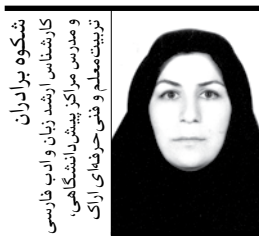 شکوه برادران
کارشناس ارشد زبان و ادب فارسی
و مدرس مراکز پیش‌دانشگاهی،
تربیت‌معلم و فنی‌حرفه‌ای اراک